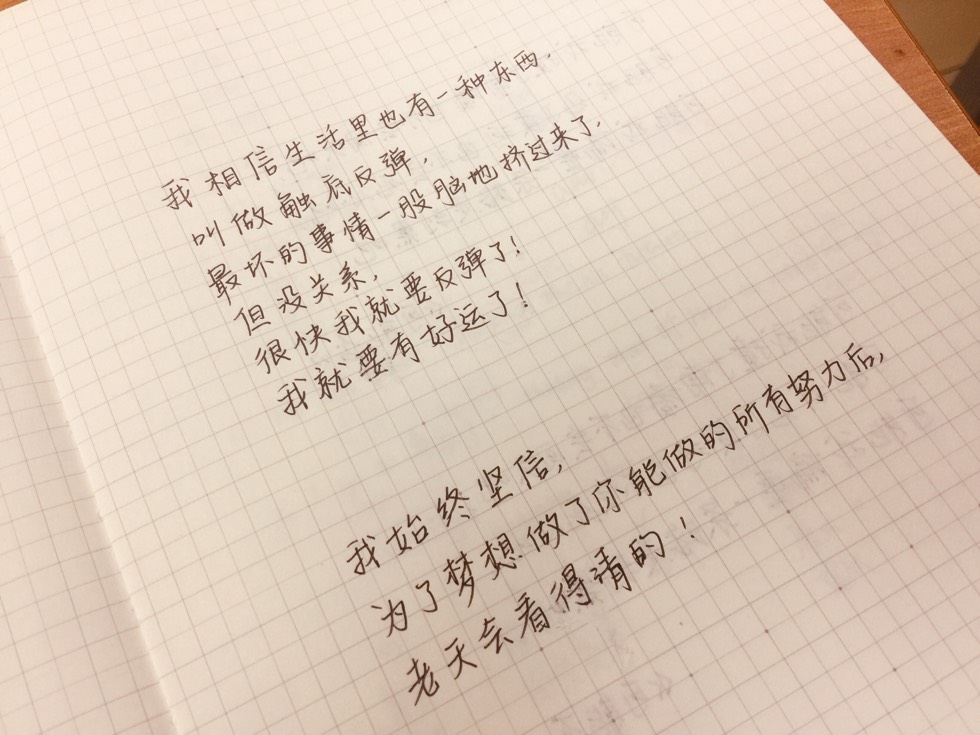 我相信生活里也有一种东西,
叫做触底反弹,
最坏的事情一股脑地挤过来了,
但没关系,
很快我就要反弹了!
我就要有好运了!
我始终坚信,
为了梦想做了你能做的所有努力后,
老天会看得清的!